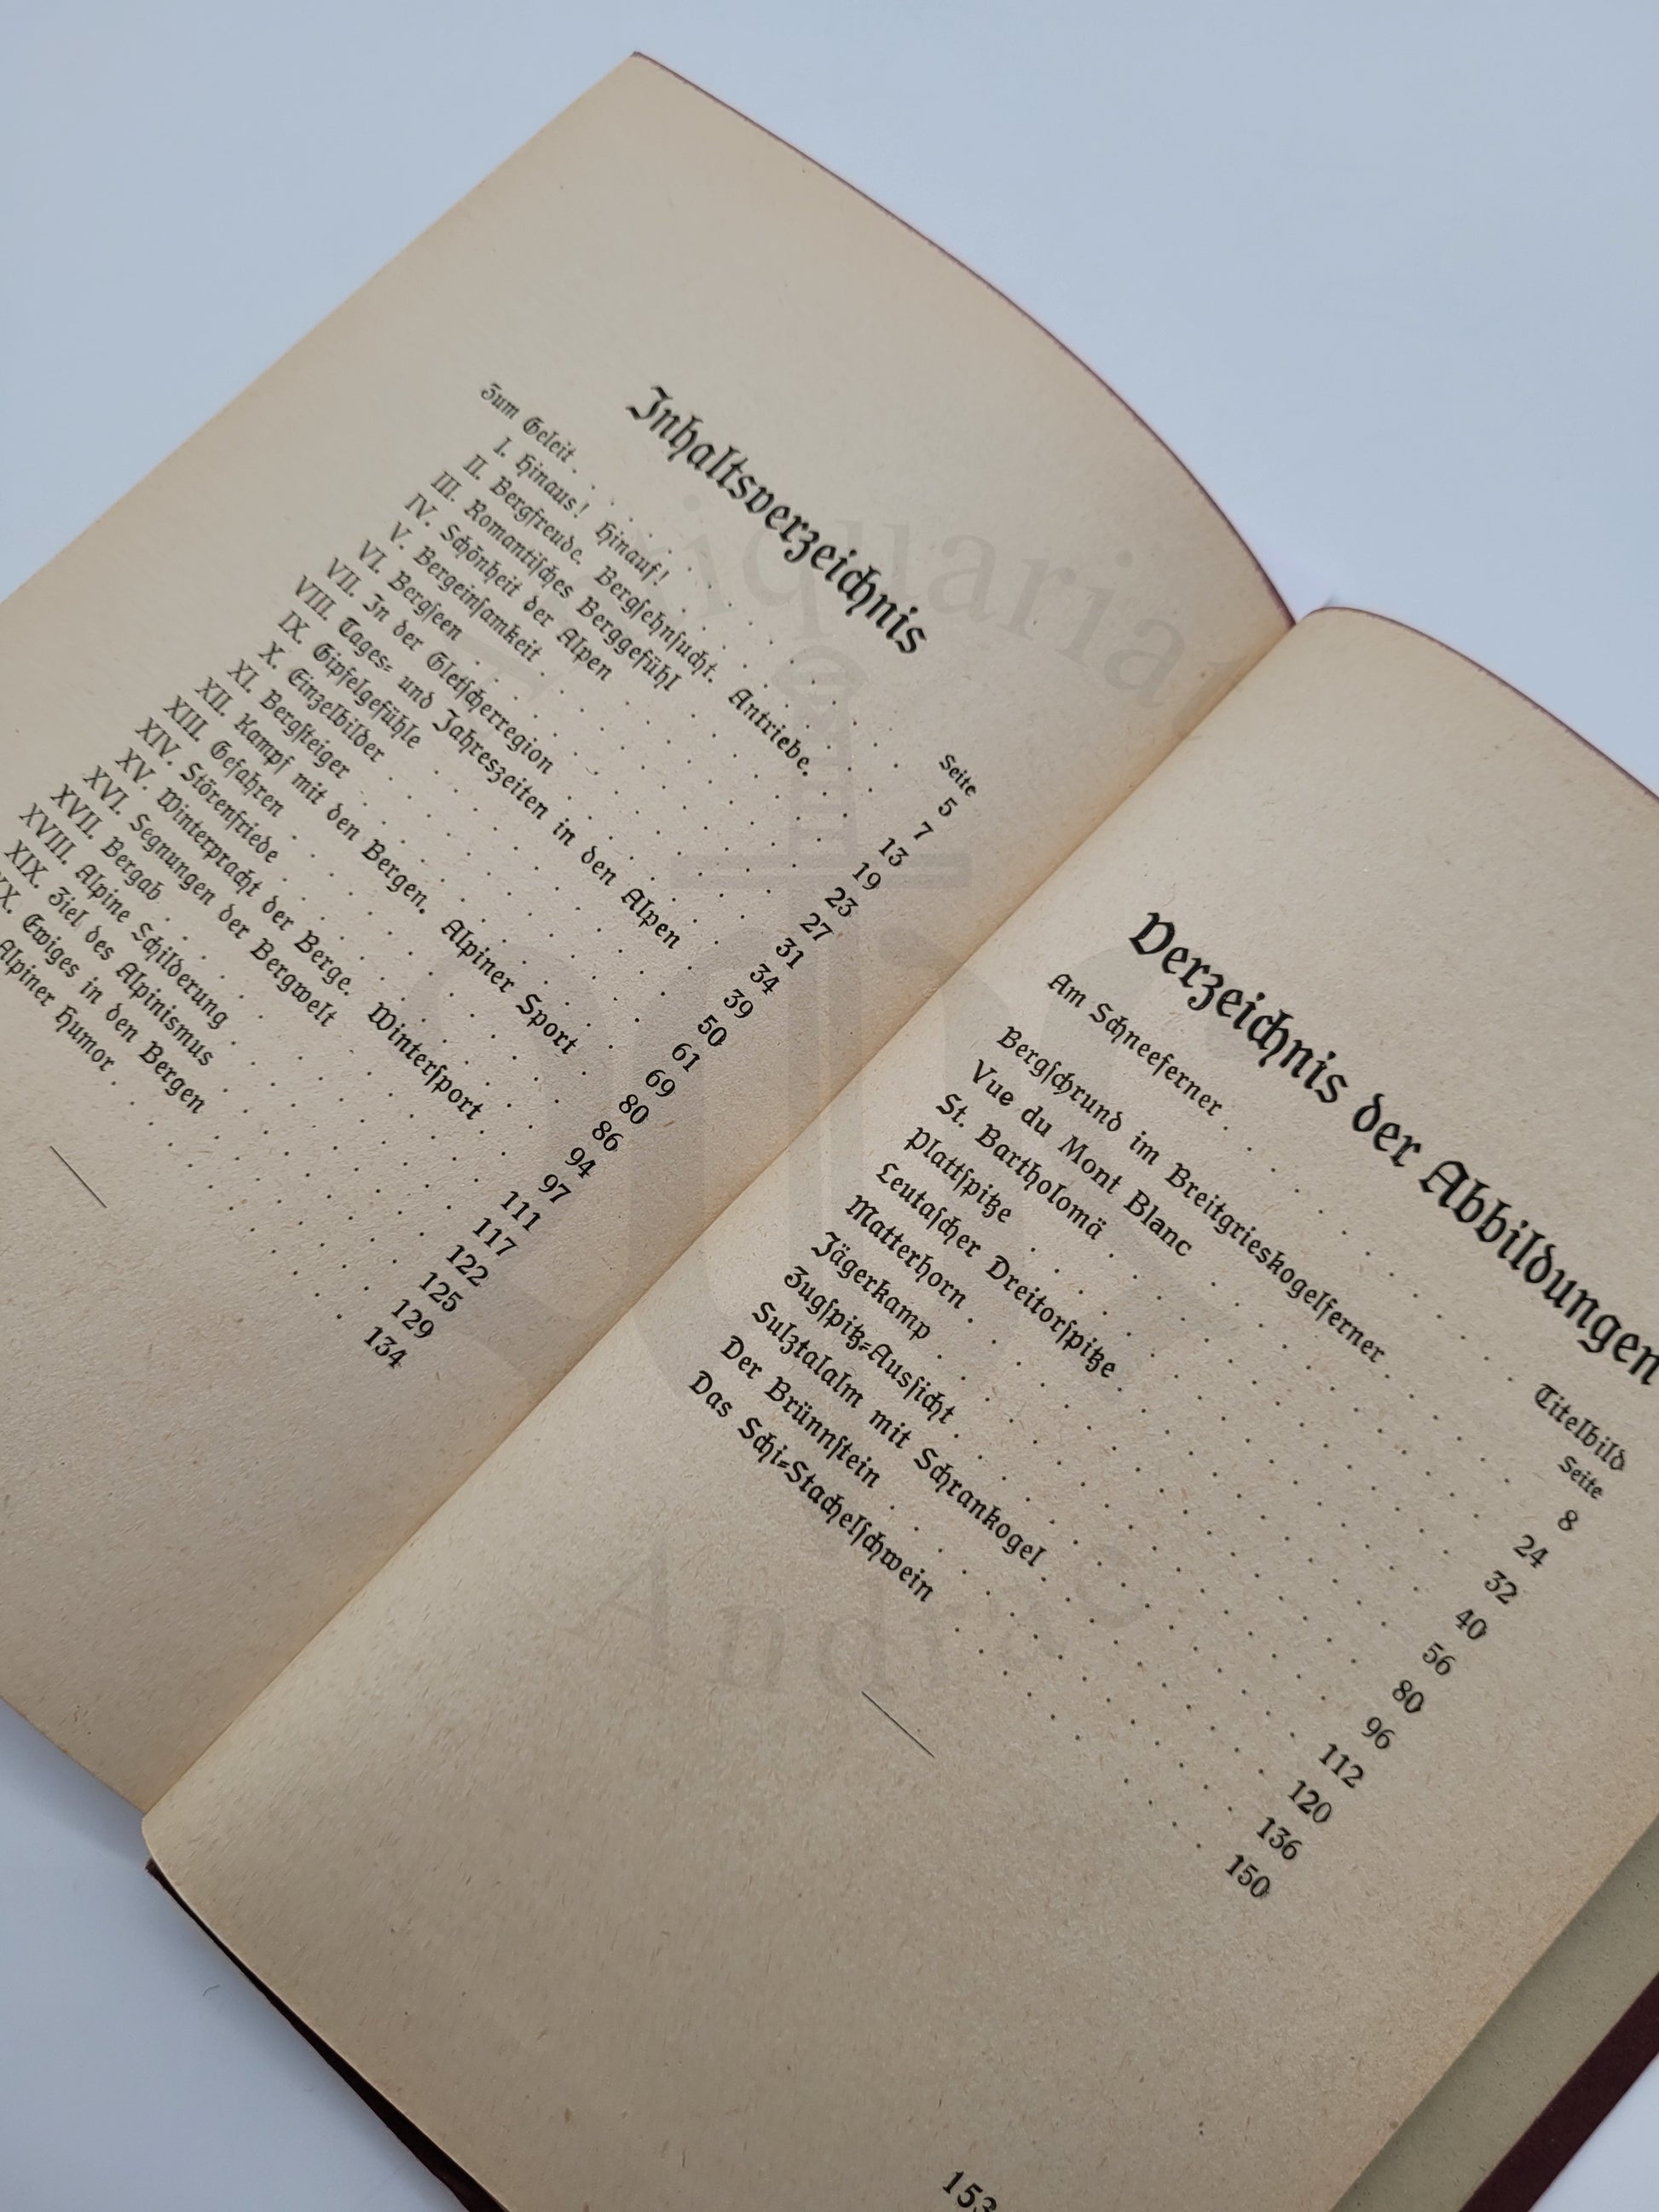 Inhaltsverzeichnis
Seite
Zum Geleit . . . . . 5
I. Hinaus! Hinauf! . . . . . 7
II. Bergfreude. Bergſehnſucht. Antriebe. . . . . . 13
III. Romantiſches Berggefühl . . . . . 19
IV. Schönheit der Alpen . . . . . 23
V. Bergeinſamkeit . . . . . 27
VI. Bergſeen . . . . . 31
VII. In der Gletſcherregion . . . . . 34
VIII. Tages- und Jahreszeiten in den Alpen . . . . . 39
IX. Gipfelgefühle . . . . . 50
X. Einzelbilder . . . . . 61
XI. Bergſteiger . . . . . 69
XII. Kampf mit den Bergen. Alpiner Sport . . . . . 80
XIII. Gefahren . . . . . 86
XIV. Störenfriede . . . . . 94
XV. Winterpracht der Berge. Winterſport . . . . . 97
XVI. Segnungen der Bergwelt . . . . . 111
XVII. Bergab . . . . . 117
XVIII. Alpine Schilderung . . . . . 122
XIX. Ziel des Alpinismus . . . . . 125
XX. Ewiges in den Bergen . . . . . 129
Alpiner Humor . . . . . 134
Verzeichnis der Abbildungen
Am Schneeferner . . . . . Titelbild
Seite
Bergſchrund im Breitgrieskogelferner . . . . . 8
Vue du Mont Blanc . . . . . 24
St. Bartholomä . . . . . 32
Plattſpitze . . . . . 40
Leutaſcher Dreitorſpitze . . . . . 56
Matterhorn . . . . . 80
Jägerkamp . . . . . 96
Zugſpitz-Ausſicht . . . . . 112
Sulztalalm mit Schrankogel . . . . . 120
Der Brünnſtein . . . . . 136
Das Schi-Stachelſchwein . . . . . 150
153